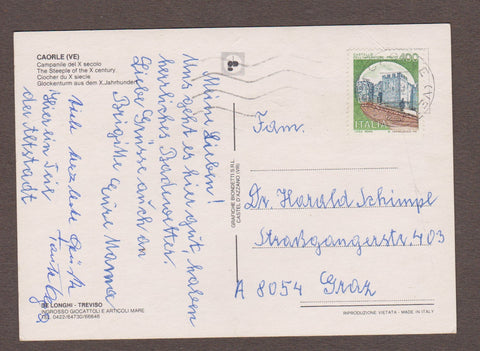 CAORLE (VE)
Campanile del X secolo
The Steeple of the X century
Clocher du X siecle
Glockenturm aus dem X.Jahrhundert
Meine Lieben!
Uns geht es hier gut haben
herrliches Badewetter.
Liebe Grüsse auch an
Brigitte Eure Mama
Auch herzliche Grüße
Tante
der Altstadt
DE LONGHI - TREVISO
INGROSSO GIOCATTOLI E ARTICOLI MARE
TEL. 0422/64730/66646
GRAFICHE BIONDETTI S.R.L.
CASTEL D'AZZANO (VR)
400
ITALIA
Fam.
Dr. Harald Schimpl
Straßgangerstr. 403
A 8054 Graz
RIPRODUZIONE VIETATA - MADE IN ITALY